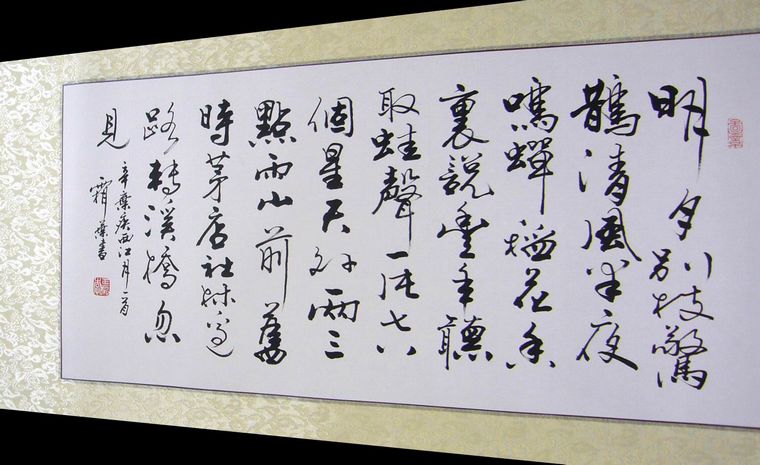 明月別枝驚
鵲清風半夜
鳴蟬稻花香
裏說豐年聽
取蛙聲一片七八
個星天外兩三
點雨山前舊
時茅店社林邊
路轉溪橋忽
見
辛棄疾西江月一首
霜葉書